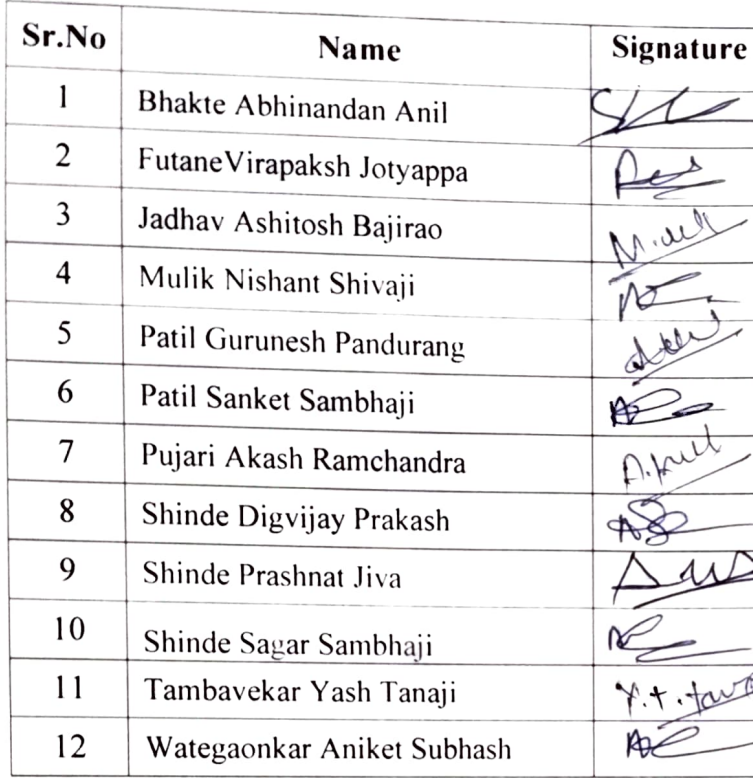 Sr.No Name Signature
1 Bhakte Abhinandan Anil
2 FutaneVirapaksh Jotyappa
3 Jadhav Ashitosh Bajirao
4 Mulik Nishant Shivaji
5 Patil Gurunesh Pandurang
6 Patil Sanket Sambhaji
7 Pujari Akash Ramchandra
8 Shinde Digvijay Prakash
9 Shinde Prashnat Jiva
10 Shinde Sagar Sambhaji
11 Tambavekar Yash Tanaji
12 Wategaonkar Aniket Subhash